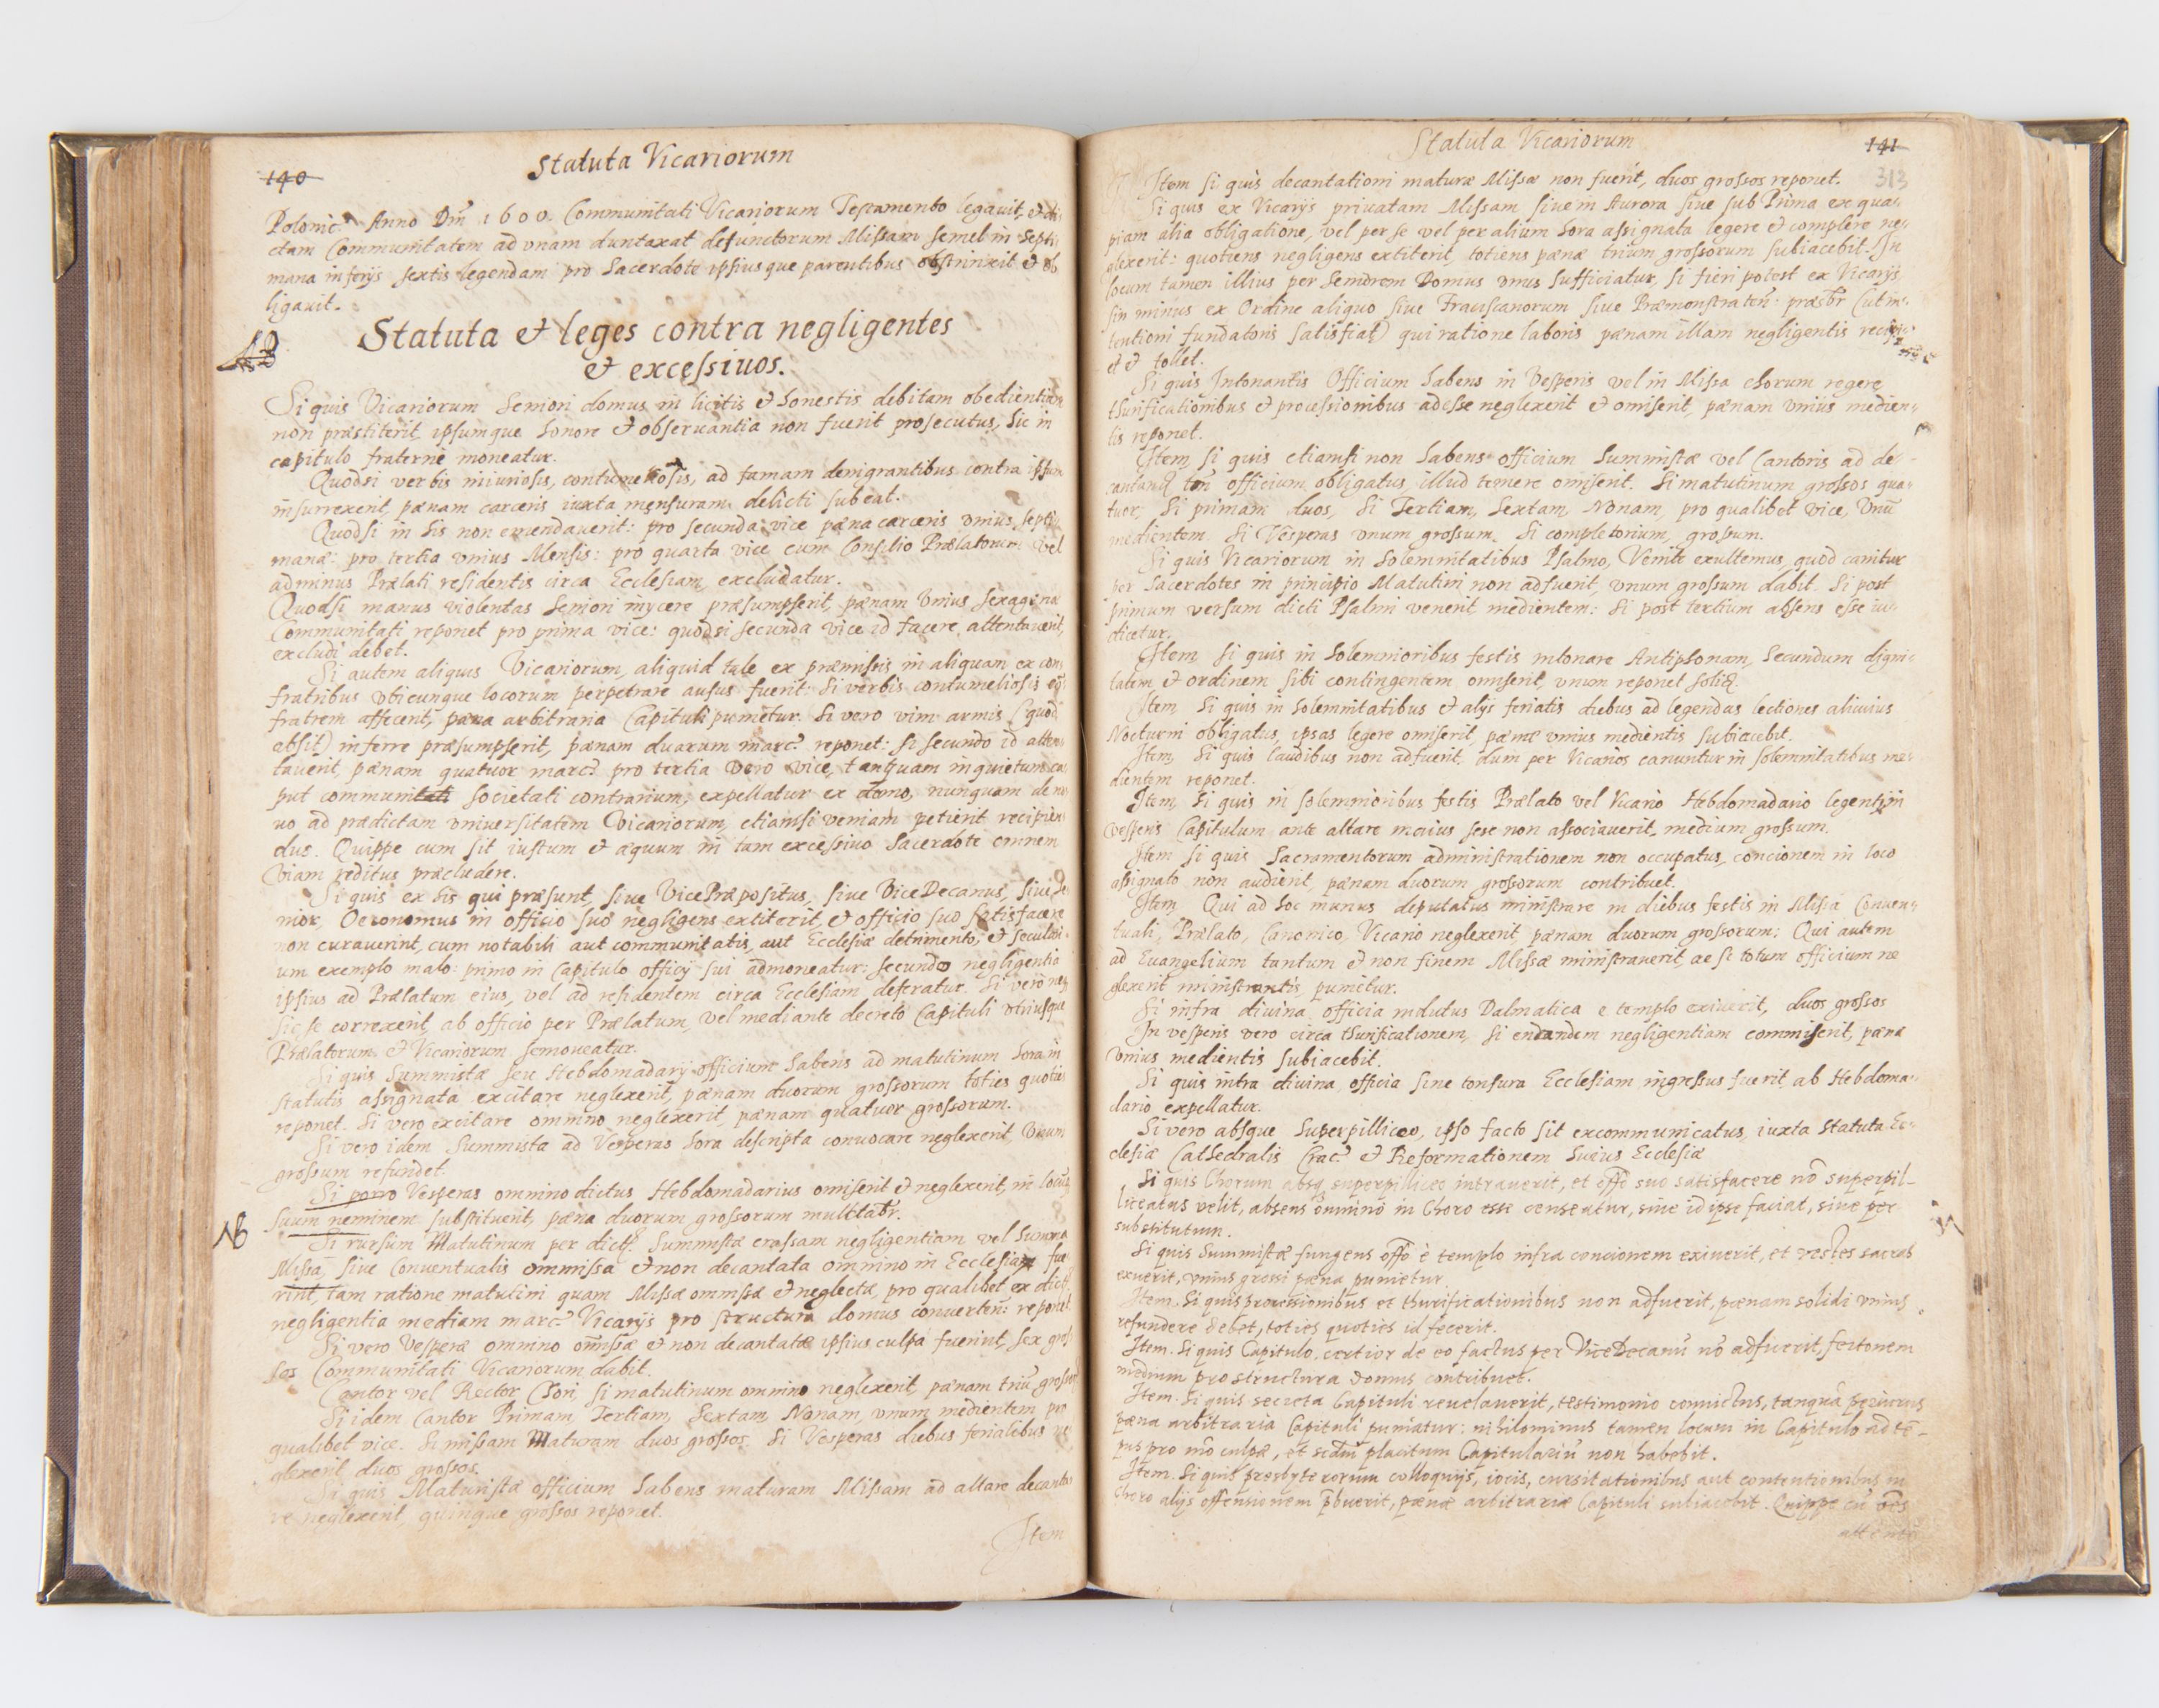 140
Statuta Vicariorum
Polonic: Anno Dni 1600. Communitati Vicariorum Testamento legavit, et di
ctam Communitatem ad vnam duntaxat defunctorum Missam semel in Septi
mana in ferijs sextis legendam pro Sacerdote ipsiusque parentibus obstrinxit et ob
ligauit.
NB
Statuta et leges contra negligentes
et excessiuos.
Si quis Vicariorum Seniori domus in licitis et honestis debitam obedientiam
non præstiterit, ipsumque honore et obseruantia non fuerit prosecutus, hic in
capitulo fraterne moneatur.
Quodsi verbis iniuriosis, contumeliosis, ad famam denigrantibus contra ipsum
insurrexerit, pænam carceris iuxta mensuram delicti subeat.
Quodsi in his non emendauerit: pro secunda vice pæna carceris vnius septi
manæ: pro tertia vnius Mensis: pro quarta vice cum Consilio Prælatorum vel
adminus Prælati residentis circa Ecclesiam, excludatur.
Quodsi manus violentas Seniori inijcere præsumpserit, pænam vnius sexagenæ
Communitati reponet pro prima vice: quodsi secunda vice id facere attentauerit,
excludi debet.
Si autem aliquis Vicariorum, aliquid tale ex præmissis in aliquam ex con
fratribus vbicunque locorum perpetrare ausus fuerit: Si verbis contumeliosis
fratrem affecerit, pæna arbitraria Capituli punietur. Si vero vim armis (quod
absit) inferre præsumpserit, pænam duarum marc: reponet: si secundo id atten
tauerit, pænam quatuor marc: pro tertia vero vice, tanquam inquietum ca
put communitati societati contrarium, expellatur ex domo, nunquam de no
uo ad prædictam vniuersitatem Vicariorum, etiamsi veniam petierit recipien
dus. Quippe cum sit iustum et æquum in tam excessiuo Sacerdote omnem
viam reditus præcludere.
Si quis ex his qui præsunt, siue VicePræpositus, siue ViceDecanus, siue Se
nior, Oeconomus in officio suo negligens extiterit, et officio suo satisfacere
non curauerint, cum notabili aut communitatis, aut Ecclesiæ detrimento, et seculari
um exemplo malo: primo in Capitulo officij sui admoneatur: secundo negligentia
ipsius ad Prælatum eius, vel ad residentem circa Ecclesiam deferatur. Si vero neq
sic se correxerit, ab officio per Prælatum, vel mediante decreto Capituli vtriusque
Prælatorum et Vicariorum semoueatur.
Si quis Summistæ seu Hebdomadarij officium habens ad matutinum hora in
statutis assignata excitare neglexerit, pænam duorum grossorum toties quoties
reponet. Si vero excitare omnino neglexerit, pænam quatuor grossorum.
Si vero idem Summista ad Vesperas hora descripta conuocare neglexerit, vnum
grossum refundet.
Si porro Vesperas omnino dictus Hebdomadarius omiserit et neglexerit, in locum
NB
suum neminem substituerit, pæna duorum grossorum mulctabr.
Si rursum Matutinum per dictæ Summistæ crassam negligentiam vel Summa
Missa, siue Conuentualis ommissa et non decantata omnino in Ecclesia fue
rint, tam ratione matutini quam Missæ ommissæ et neglectæ, pro qualibet ex dict
negligentia mediam marc: Vicarijs pro structura domus conuerten: reponet
Si vero Vesperæ omnino omissæ et non decantatæ ipsius culpa fuerint, sex gros
sos Communitati Vicariorum dabit.
Cantor vel Rector Chori, si matutinum omnino neglexerit, pænam triu grossor
Si idem Cantor Primam, Tertiam, Sextam, Nonam, vnum medientem pro
qualibet vice. Si missam Maturam duos grossos. Si Vesperas diebus ferialibus ne
glexerit, duos grossos.
Si quis Maturistæ officium habens maturam Missam ad altare decanta
re neglexerit, quinque grossos reponet.
Item
Statuta Vicariorum
141
313
Item si quis decantationi maturæ Missæ non fuerit, duos grossos reponet.
Si quis ex Vicarijs priuatam Missam, siue in Aurora siue sub Prima ex qua
piam alia obligatione, vel per se vel per alium hora assignata legere et complere ne
glexerit: quotiens negligens extiterit, totiens pænæ trium grossorum subiacebit. In
locum tamen illius per Seniorem Domus vnus sufficiatur, si fieri potest ex Vicarijs,
sin minus ex Ordine aliquo siue Franciscanorum siue Præmonstraten: præsbr (ut in
tentioni fundatoris satisfiat) qui ratione laboris pænam illam negligentis recipi
et et tollet.
Si quis Intonantis Officium habens in Vesperis vel in Missa chorum regere
thurificationibus et processionibus adesse neglexerit et omiserit, pænam vnius medien
tis reponet.
Item, si quis etiamsi non habens officium Summistæ vel Cantoris ad de
cantand tn officium obligatus, illud temere omiserit. Si matutinum grossos qua
tuor, Si primam duos, Si Tertiam, Sextam, Nonam, pro qualibet vice, Vnu
medientem. Si Vesperas vnum grossum. Si completorium, grossum.
Si quis Vicariorum in Solemnitatibus Psalmo, Venite exultemus, quod canitur
per Sacerdotes in principio Matutini non adfuerit, vnum grossum dabit. Si post
primum versum dicti Psalmi venerit medientem: Si post tertium absens esse iu
dicetur.
Item, si quis in Solemnioribus festis intonare Antiphonam, secundum digni
tatem et ordinem sibi contingentem omiserit, vnum reponet solid.
Item Si quis in Solemnitatibus et alijs feriatis diebus ad legendas lectiones alicuius
Nocturni obligatus, ipsas legere omiserit, pænæ vnius medientis subiacebit.
Item, Si quis laudibus non adfuerit, dum per Vicarios canuntur in solemnitatibus me
dientem reponet.
Item, Si quis in solemnioribus festis Prælato vel Vicario Hebdomadario legenti in
vesperis Capitulum ante altare maius sese non associauerit, medium grossum.
Item Si quis Sacramentorum administrationem non occupatus, concionem in loco
assignato non audierit, pænam duorum grossorum contribuet.
Item, Qui ad hoc munus deputatus ministrare in diebus festis in Missa Conuen
tuali, Prælato, Canonico, Vicario neglexerit, pænam duorum grossorum: Qui autem
ad Euangelium tantum et non finem Missæ ministrauerit, ac si totum officium ne
glexerit ministrantis, punietur.
Si infra diuina officia indutus Dalmatica e templo exiuerit, duos grossos
In vesperis vero circa thurificationem, si eandem negligentiam commiserit, pæna
vnius medientis subiacebit.
Si quis intra diuina officia sine tonsura Ecclesiam ingressus fuerit, ab Hebdoma
dario expellatur.
Si vero absque Superpilliceo, ipso facto sit excommunicatus, iuxta Statuta Ec
clesiæ Cathedralis Crac: et Reformationem huius Ecclesiæ
Si quis Chorum absq superpilliceo intrauerit, et offo suo satisfacere nō superpil-
liceatus velit, absens omnino in Choro esse censeatur, siue id ipse faciat, siue per
substitutum.
Si quis Summistæ fungens offo è templo infra concionem exiuerit, et vestes sacras
exuerit, vnius grossi pæna punietur.
Item. Si quis processionibus et thurificationibus non adfuerit, pænam solidi vnius
refundere debet, toties quoties id fecerit.
Item. Si quis Capitulo, certior de eo factus per ViceDecanū nō adfuerit, fertonem
medium pro structura domus contribuet.
Item. Si quis secreta Capituli reuelauerit, testimonio conuictus, tanquā periurus
pæna arbitraria Capituli puniatur: nihilominus tamen locum in Capitulo ad tē-
pus pro mō culpæ, et scdm placitum Capitulariū non habebit.
Item. Si quis presbyterorum colloquijs, iocis, cursitationibus aut contentionibus in
Choro alijs offensionem pbuerit, pænæ arbitrariæ Capituli subiacebit. Quippe cū oēs